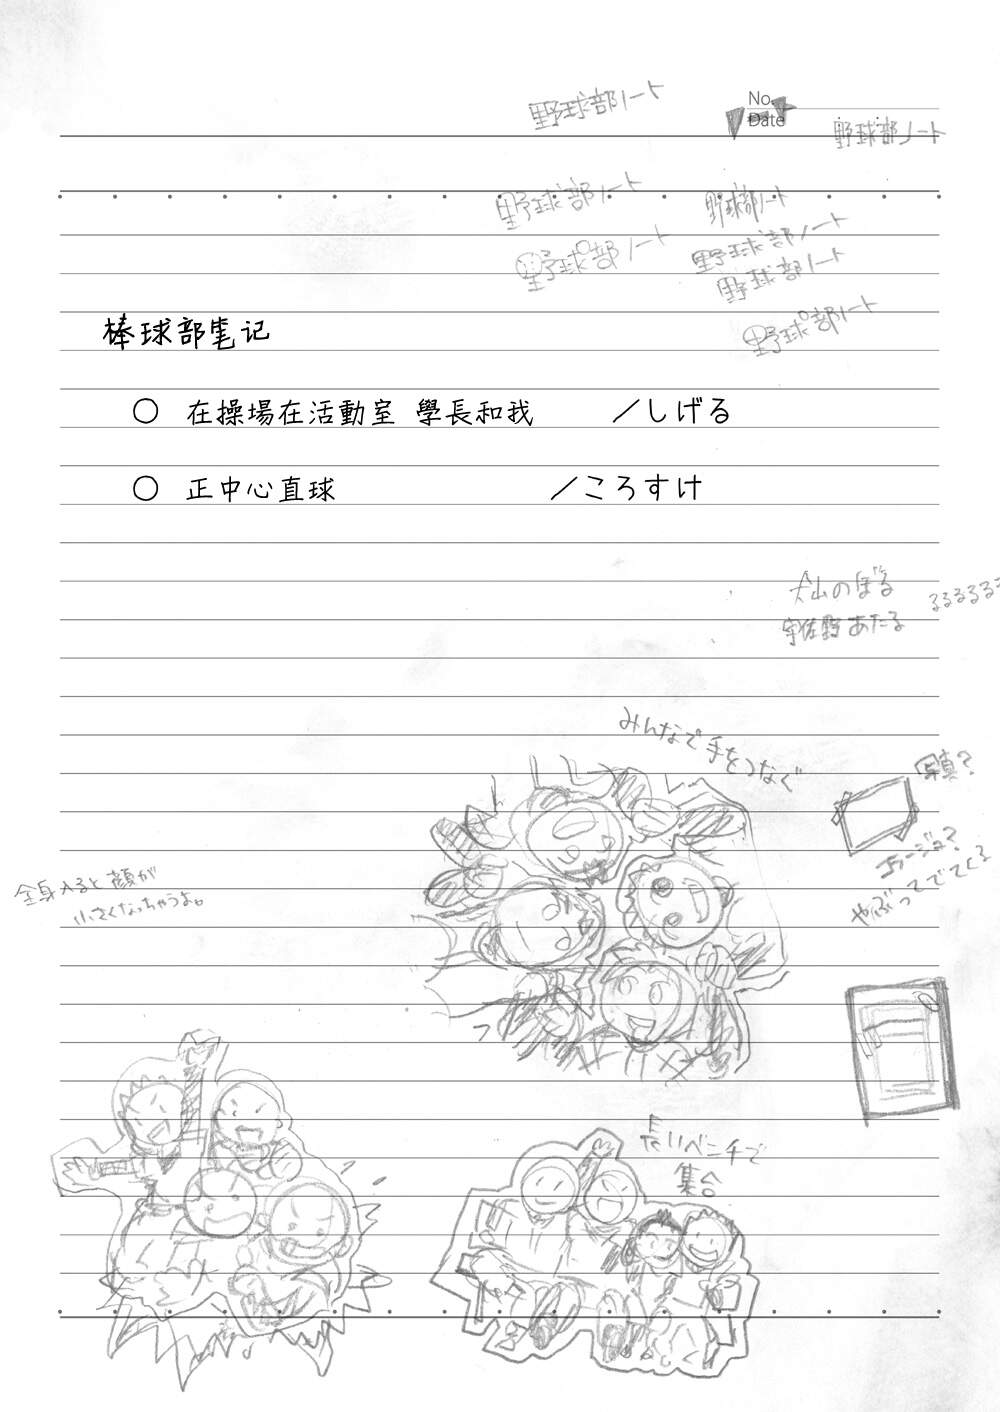 野球部ノート
No.
Date
野球部ノート
野球部ノート
野球部ノート
野球部ノート
野球部ノート
野球部ノート
野球部ノート
棒球部笔记
○ 在操場在活動室 學長和我 ／しげる
○ 正中心直球 ／ころすけ
犬山のぼる
るるるるる
宇佐野あたる
みんなで手をつなぐ
写真？
コラージュ？
やぶってでてくる
全身入ると顔が
小さくなっちゃうよ。
長いベンチで
集合